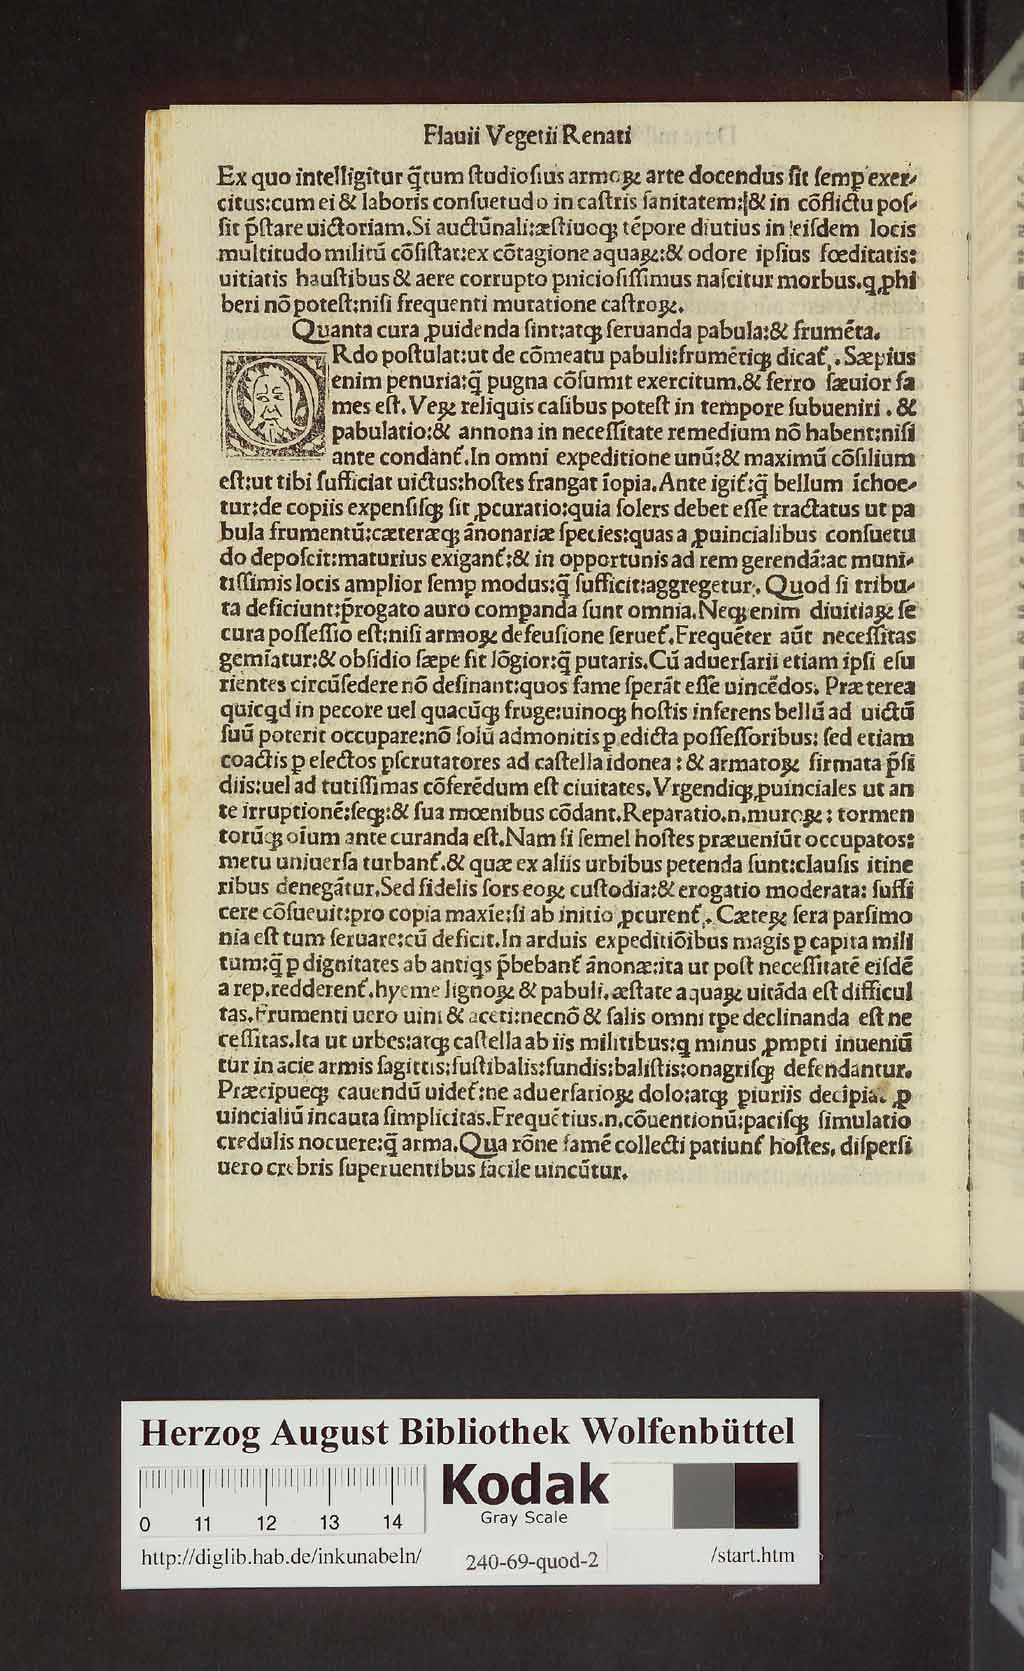 Flauii Vegetii Renati
Ex quo intelligitur q̃tum ſtudioſius armoꝝ arte docendus ſit ſemꝑ exer⸗
citus:cum ei & laboris conſuetudo in caſtris ſanitatem:& in cõflictu poſ⸗
ſit p̃ſtare uictoriam.Si auctũnali:æſtiuoqꝫ tẽpore diutius in eiſdem locis
multitudo militũ cõſiſtat:ex cõtagione aquaꝝ:& odore ipſius fœditatis:
uitiatis hauſtibus & aere corrupto ꝑnicioſiſſimus naſcitur morbus.ꝗ ꝓhi
beri nõ poteſt:niſi frequenti mutatione caſtroꝝ.
Quanta cura ꝓuidenda ſint:atqꝫ ſeruanda pabula:& frumẽta.
ORdo poſtulat:ut de cõmeatu pabuli:frumẽtiqꝫ dicat᷑. Sæpius
enim penuria:q̃ pugna cõſumit exercitum.& ferro ſæuior fa
mes eſt. Veꝝ reliquis caſibus poteſt in tempore ſubueniri. &
pabulatio:& annona in neceſſitate remedium nõ habent:niſi
ante condant᷑.In omni expeditione unũ:& maximũ cõſilium
eſt:ut tibi ſufficiat uictus:hoſtes frangat ĩopia.Ante igit᷑:q̃ bellum ĩchoe⸗
tur:de copiis expenſiſqꝫ ſit ꝓcuratio:quia ſolers debet eſſe tractatus ut pa
bula frumentũ:cæteræqꝫ ãnonariæ ſpecies:quas a ꝓuincialibus conſuetu
do depoſcit:maturius exigant᷑:& in opportunis ad rem gerendã:ac muni⸗
tiſſimis locis amplior ſemꝑ modus:q̃ ſufficit:aggregetur. Quod ſi tribu⸗
ta deficiunt:p̃rogato auro comꝑanda ſunt omnia.Neqꝫ enim diuitiaꝝ ſe
cura poſſeſſio eſt:niſi armoꝝ defeuſione ſeruet᷑.Frequẽter aũt neceſſitas
gemĩatur:& obſidio ſæpe fit lõgior:q̃ putaris.Cũ aduerſarii etiam ipſi eſu
rientes circũſedere nõ deſinant:quos fame ſperãt eſſe uincẽdos. Præterea
quicꝗd in pecore uel quacũqꝫ fruge:uinoqꝫ hoſtis inferens bellũ ad uictũ
ſuũ poterit occupare:nõ ſolũ admonitis ꝑ edicta poſſeſſoribus: ſed etiam
coactis ꝑ electos ꝑſcrutatores ad caſtella idonea: & armatoꝝ firmata p̃ſi
diis:uel ad tutiſſimas cõferẽdum eſt ciuitates. Vrgendiqꝫ ꝓuinciales ut an
te irruptionẽ:ſeqꝫ:& ſua mœnibus cõdant.Reparatio.n.muroꝝ: tormen
torũqꝫ oĩum ante curanda eſt.Nam ſi ſemel hoſtes præueniũt occupatos:
metu uniuerſa turbant᷑.& quæ ex aliis urbibus petenda ſunt:clauſis itine
ribus denegãtur.Sed fidelis ſors eoꝝ cuſtodia:& erogatio moderata: ſuffi
cere cõſueuit:pro copia maxĩe:ſi ab initio ꝓcurent᷑. Cæteꝝ ſera parſimo
nia eſt tum ſeruare:cũ deficit.In arduis expeditiõibus magis ꝑ capita mili
tum:q̃ ꝑ dignitates ab antiꝗs p̃bebant᷑ ãnonæ:ita ut poſt neceſſitatẽ eiſdẽ
a rep.redderent᷑.hyeme lignoꝝ & pabuli.æſtate aquaꝝ uitãda eſt difficul
tas.Frumenti uero uini & aceti:necnõ & ſalis omni tꝑe declinanda eſt ne
ceſſitas.Ita ut urbes:atqꝫ caſtella ab iis militibus:ꝗ minus ꝓmpti inueniũ
tur in acie armis ſagittis:fuſtibalis:fundis:baliſtis:onagriſqꝫ defendantur.
Præcipueqꝫ cauendũ uidet᷑:ne aduerſarioꝝ dolo:atqꝫ ꝑiuriis decipia. ꝓ
uincialiũ incauta ſimplicitas.Frequẽtius.n.cõuentionũ:paciſqꝫ ſimulatio
credulis nocuere:q̃ arma.Qua rõne famẽ collecti patiunt᷑ hoſtes. diſperſi
uero crebris ſuperuentibus facile uincũtur.
Herzog August Bibliothek Wolfenbüttel
0 11 12 13 14
Kodak
Gray Scale
http://diglib.hab.de/inkunabeln/ 240-69-quod-2 /start.htm